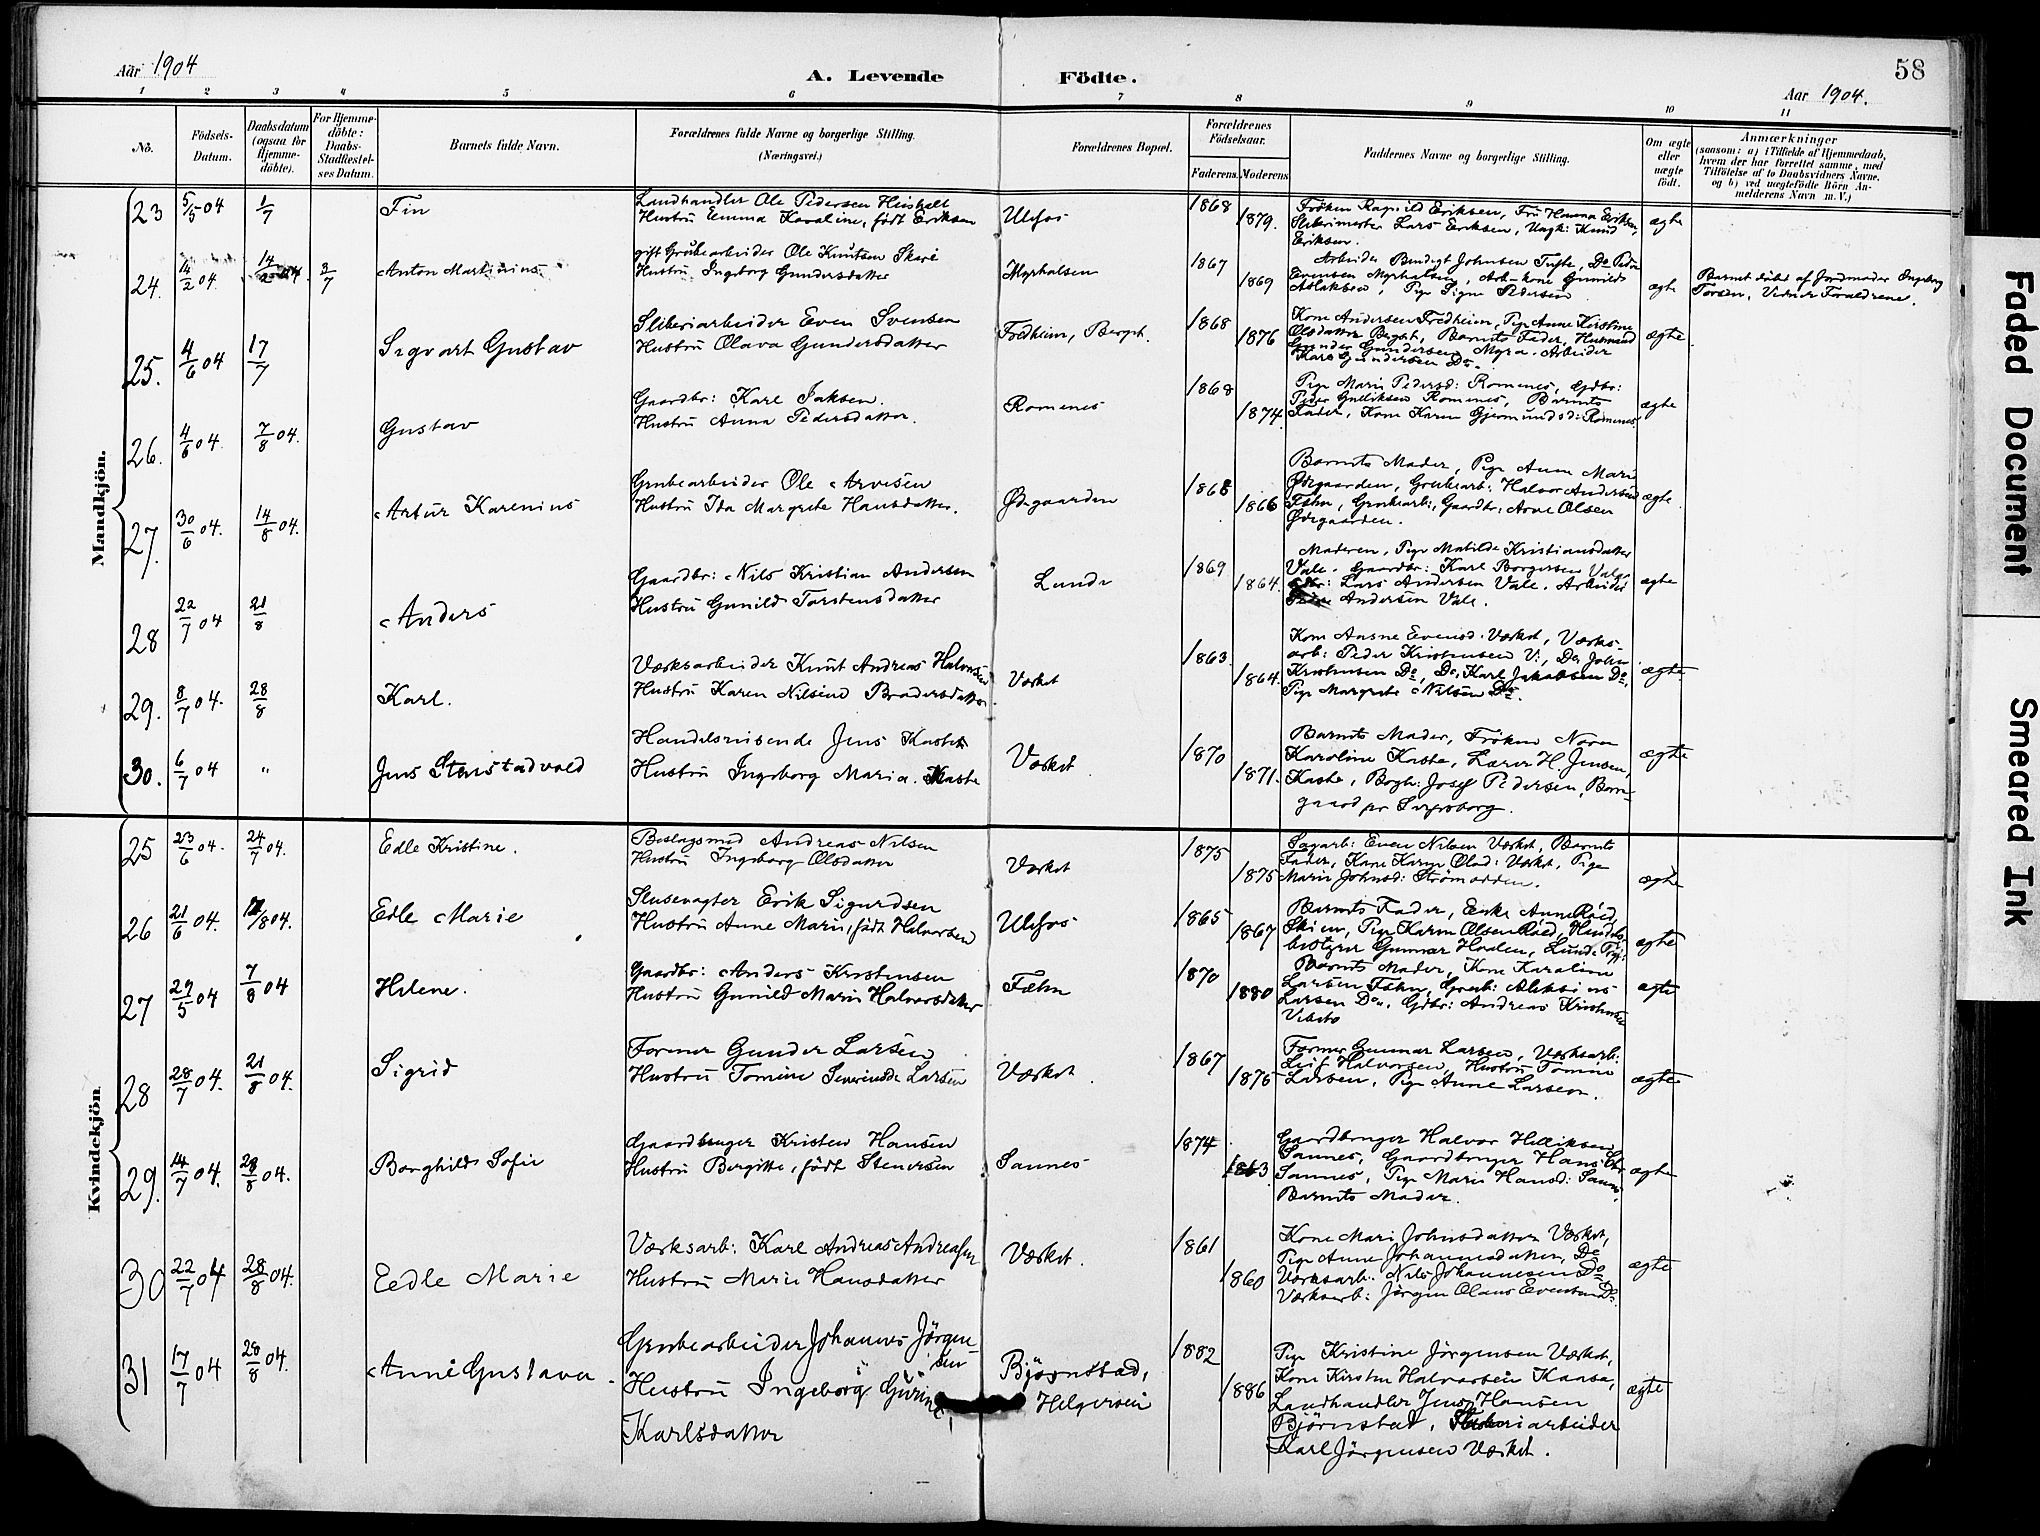 Aar 1904
A. Levende Födte.
58
Aar 1904.
1 2 3 4 5 6 7 8 9 10 11
No.
Födsels-Datum.
Daabsdatum (ogsaa for Hjemme-döbte).
For Hjemme-döbte: Daabs-Stadfæstel-ses Datum.
Barnets fulde Navn.
Forældrenes fulde Navne og borgerlige Stilling.
(Næringsvei.)
Forældrenes Bopæl.
Forældrenes Födselsaar.
Faderens. Moderens.
Faddernes Navne og borgerlige Stilling.
Om ægte eller uægte födt.
Anmærkninger
(saasom: a) i Tilfælde af Hjemmedaab,
hvem der har forrettet samme, med
Tilföielse af to Daabsvidners Navne,
og b) ved uægtefödte Börn An-
melderens Navn m. V.)
Mandkjön.
23 5/5 04 1/7 Fin
Landhandler Ole Pedersen Heisholt
Hustru Emma Karoline, født Eriksen
Ulefos 1868 1879.
Frøken Ragnild Eriksen, Fru Hanna Eriksen,
Sliberimester Lars Eriksen, Ungk: Knud
Eriksen.
ægte
24. 14/2 04. 14/2 04. 3/7 Anton Martinius
gift Grubearbeider Ole Knutsen Skare
Hustru Ingeborg Gundersdatter
Myrhalsen 1867 1869
Arbeider Bendigt Johnsen Tufte, Do Peder
Evensen Myrhalsen, Arb. kone Gunild
Aslaksen, Pige Signe Pedersen
ægte
Barnet døbt af Jordmoder Ingeborg
Torsen, Vidner Forældrene.
25. 4/6 04 17/7 Sigvart Gustav
Sliberiarbeider Even Svensen
Hustru Olava Gundersdatter
Fredheim, Bergst. 1868 1876
Kone Andersen Fredheim, Pige Anne Kirstine
Olsdatter Bergst, Barnets Fader, Husmand
Gunder Gundersen Myra. Arbeider
Karl Gundersen Do.
ægte
26. 4/6 04. 7/8 04. Gustav
Gaardbr: Karl Isaksen.
Hustru Anna Pedersdatter.
Romenes 1868 1874.
Pige Marie Pedersd: Romenes, Gdbr:
Peder Gulliksen Romenes, Barnets
Fader, Kone Karen Gjermundsd: Romenes.
ægte
27. 30/6 04. 14/8 04. Artur Karenius
Grubearbeider Ole Arvesen
Hustru Ida Margrete Hansdatter.
Ødegaarden 1868 1866
Barnets Moder, Pige Anne Marie
Ødegaarden, Grubearb: Halvor Andersen
Fæhn, Grubearb:, Gaardbr: Arne Olsen
Ødegaarden.
ægte
28 22/7 04 21/8 Anders
Gaardbr: Nils Kristian Andersen
Hustru Gunild Torstensdatter
Lunde 1869 1864.
Moderen, Pige Matilde Kristiansdatter
Vale. Gaardbr: Karl Borgersen Vale,
Gdbr: Lars Andersen Vale. Arbeider
Andersen Vale.
ægte
29. 8/7 04. 28/8 Karl.
Værksarbeider Knut Andreas Halvorsen
Hustru Karen Nilsine Brødersdatter.
Værket 1863 1864.
Kone Aasne Evensd. Værket, Værks-
arb: Peder Kristensen V:, Do John
Kristensen Do, Do, Karl Jakobsen Do,
Pige Margrete Nilsen Do.
ægte
30. 6/7 04 " Jens Stenstadvold
Handelsreisende Jens Kaste
Hustru Ingeborg Maria Kaste
Værket 1870 1871.
Barnets Moder, Frøken Nora
Karoline Kaste, Lærer H. Jensen,
Kaste, Bogh: Josef Pedersen, Borre-
gaard pr Sarpsborg.
ægte
Kvindekjön.
25 23/6 04. 24/7 04. Edle Kristine.
Beslagsmed Andreas Nilsen
Hustru Ingeborg Olsdatter
Værket 1875 1875
Sagarb: Even Nilsen Værket, Barnets
Fader, Kone Karen Olsd: Værket, Pige
Marie Johnsd: Strømodden.
ægte
26 21/6 04. /8 04. Edle Marie
Slusevagter Erik Sigurdsen
Hustru Anne Marie, født Halvorsen
Ulefos 1865 1867
Barnets Fader, Enke Anne Røed,
Skien, Pige Karen Olsen Røed, Handels-
bestyrer Gunnar Hvalen, Lunde Pige:
ægte
27 29/5 04 7/8 04 Helene.
Gaardbr: Anders Kristensen
Hustru Gunild Marie Halvorsdatter
Fæhn 1870 1880
Barnets Moder, Kone Karoline
Larsen Fæhn, Grarb: Aleksius
Larsen Do, Gdbr: Andreas Kristensen
Vibeto
ægte
28 28/7 04. 21/8 04. Sigrid
Former Gunder Larsen
Hustru Tomine Severinsdtr Larsen
Værket. 1867 1876
Former Gunnar Larsen, Værksarb:
Leif Halvorsen, Hustru Tomine
Larsen, Pige Anne Larsen.
ægte
29. 14/7 04. 28/8 04. Borghild Sofie
Gaardbruger Kristen Hansen
Hustru Birgitte, født Stenersen
Sannes 1874. 1863.
Gaardbruger Halvor Helliksen
Sannes, Gaardbruger Hans
Sannes, Pige Marie Hansd: Sannes,
Barnets Moder.
ægte
30 22/7 04 28/8 04. Eedle Marie
Værksarb: Karl Andreas Andreassen
Hustru Marie Hansdatter
Værket. 1861 1860
Kone Mari Johnsdatter Værket,
Pige Anne Johannesdatter, Do
Værksarb. Nils Johannesen Do
Værksarb: Jørgen Olaus Evensen Do.
ægte
31 17/7 04 28/8 04. Anne Gustava.
Grubearbeider Johannes Jörgen-
sen
Hustru Ingeborg Gurine
Karlsdatter
Björnstad,
Helgersen
1882 1886
Pige Kristine Jörgensen Værket,
Kone Kirsten Halvorsen Kaasa,
Landhandler Jens Hansen
Björnstad, Sliberiarbeider
Karl Jörgensen Værket.
ægte
Faded Document
Smeared Ink